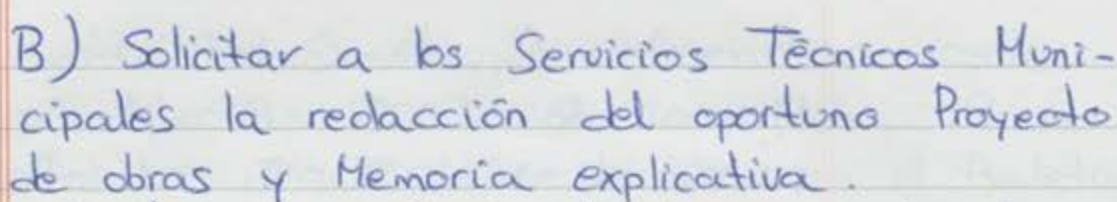 B) Solicitar a los Servicios Técnicos Muni-
cipales la redacción del oportuno Proyecto
de obras y Memoria explicativa.